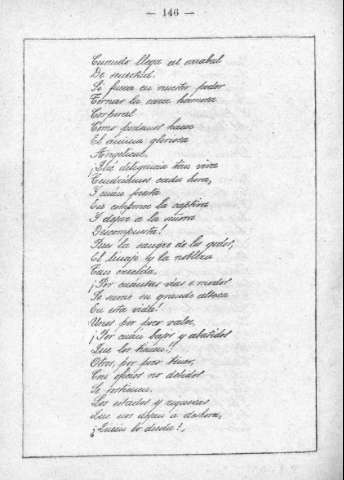 — 146 —
Cuando llega al arrabal
De senectud.
Si fuera en nuestro poder
Tornar la cara hermosa
Corporal
Como podemos hacer
El ánima gloriosa
Angelical,
¡Qué diligencia tan viva
Tendríamos cada hora,
I cuán presta
En componer la captiva
I dejar a la señora
Descompuesta!
Pues la sangre de los godos,
El linaje y la nobleza
Tan crecida,
¡Por cuántas vías e modos
Se sume su grande alteza
En esta vida!
Unos por poco valer,
¡Por cuán bajos y abatidos
Que los tienen!
Otros, por poco tener,
Con oficios no debidos
Se sostienen.
Los estados y riquezas
Que nos dejan a deshora,
¡Quién lo duda!,